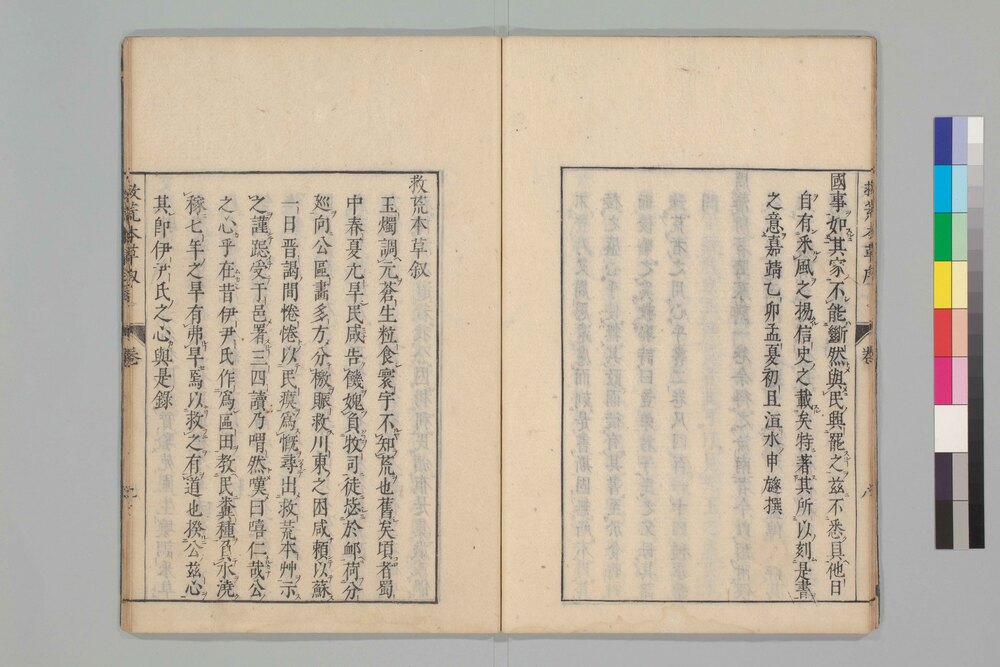 國事如其家不能斷然與民興罷之茲不悉具他日
自有釆風之揚信史之載矣特著其所以刻是書
之意嘉靖乙卯孟夏初且洹水申𣝗撰
救荒本草叙
玉燭調元蒼生粒食寰宇不知荒也舊矣頃者蜀
中春夏尤旱民咸告饑媿負牧司徒毖於䘏荷分
廵向公區畫多方分檄賑救川東之困咸頼以蘇
一日晋謁間惓惓以民瘼為慨尋出救荒本艸示
之謹跽受于邑署三四讀乃喟然嘆曰嘻仁哉公
之心乎在昔伊尹氏作為區田教民糞種負水澆
稼七年之旱有弗旱焉以救之有道也揆公茲心
其卽伊尹氏之心與是錄